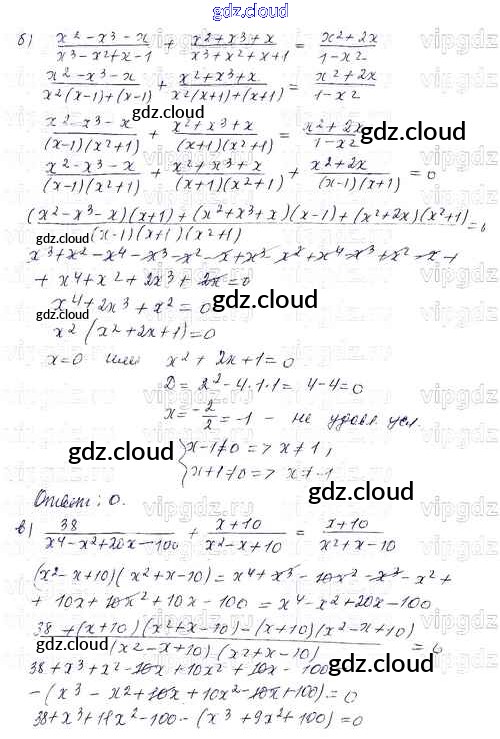 gdz.cloud
б) (x²-x³-x)/(x³-x²+x-1) + (x²+x³+x)/(x³+x²+x+1) = (x²+2x)/(1-x²)
(x²-x³-x)/(x²(x-1)+(x-1)) + (x²+x³+x)/(x²(x+1)+(x+1)) = (x²+2x)/(1-x²)
(x²-x³-x)/((x-1)(x²+1)) + (x²+x³+x)/((x+1)(x²+1)) = (x²+2x)/(1-x²)
(x²-x³-x)/((x-1)(x²+1)) + (x²+x³+x)/((x+1)(x²+1)) + (x²+2x)/((x-1)(x+1)) = 0
((x²-x³-x)(x+1)+(x²+x³+x)(x-1)+(x²+2x)(x²+1))/((x-1)(x+1)(x²+1)) = 0
x³+x²-x⁴-x³-x²-x+x³-x²+x⁴-x³+x²-x+
+ x⁴+x²+2x³+2x=0
x⁴+2x³+x²=0
x²(x²+2x+1)=0
x=0 или x²+2x+1=0
D=2²-4·1·1=4-4=0
x=-2/2=-1 - не удовл. усл.
{x-1≠0 => x≠1,
x+1≠0 => x≠-1
Ответ: 0.
в) 38/(x⁴-x²+20x-100) + (x+10)/(x²-x+10) = (x+10)/(x²+x-10)
(x²-x+10)(x²+x-10)=x⁴+x³-10x²-x³-x²+
+10x+10x²+10x-100=x⁴-x²+20x-100
(38+(x+10)(x²+x-10)-(x+10)(x²-x+10))/((x²-x+10)(x²+x-10)) = 0
38+x³+x²-10x+10x²+10x-100-
-(x³-x²+10x+10x²-10x+100)=0
38+x³+11x²-100-(x³+9x²+100)=0